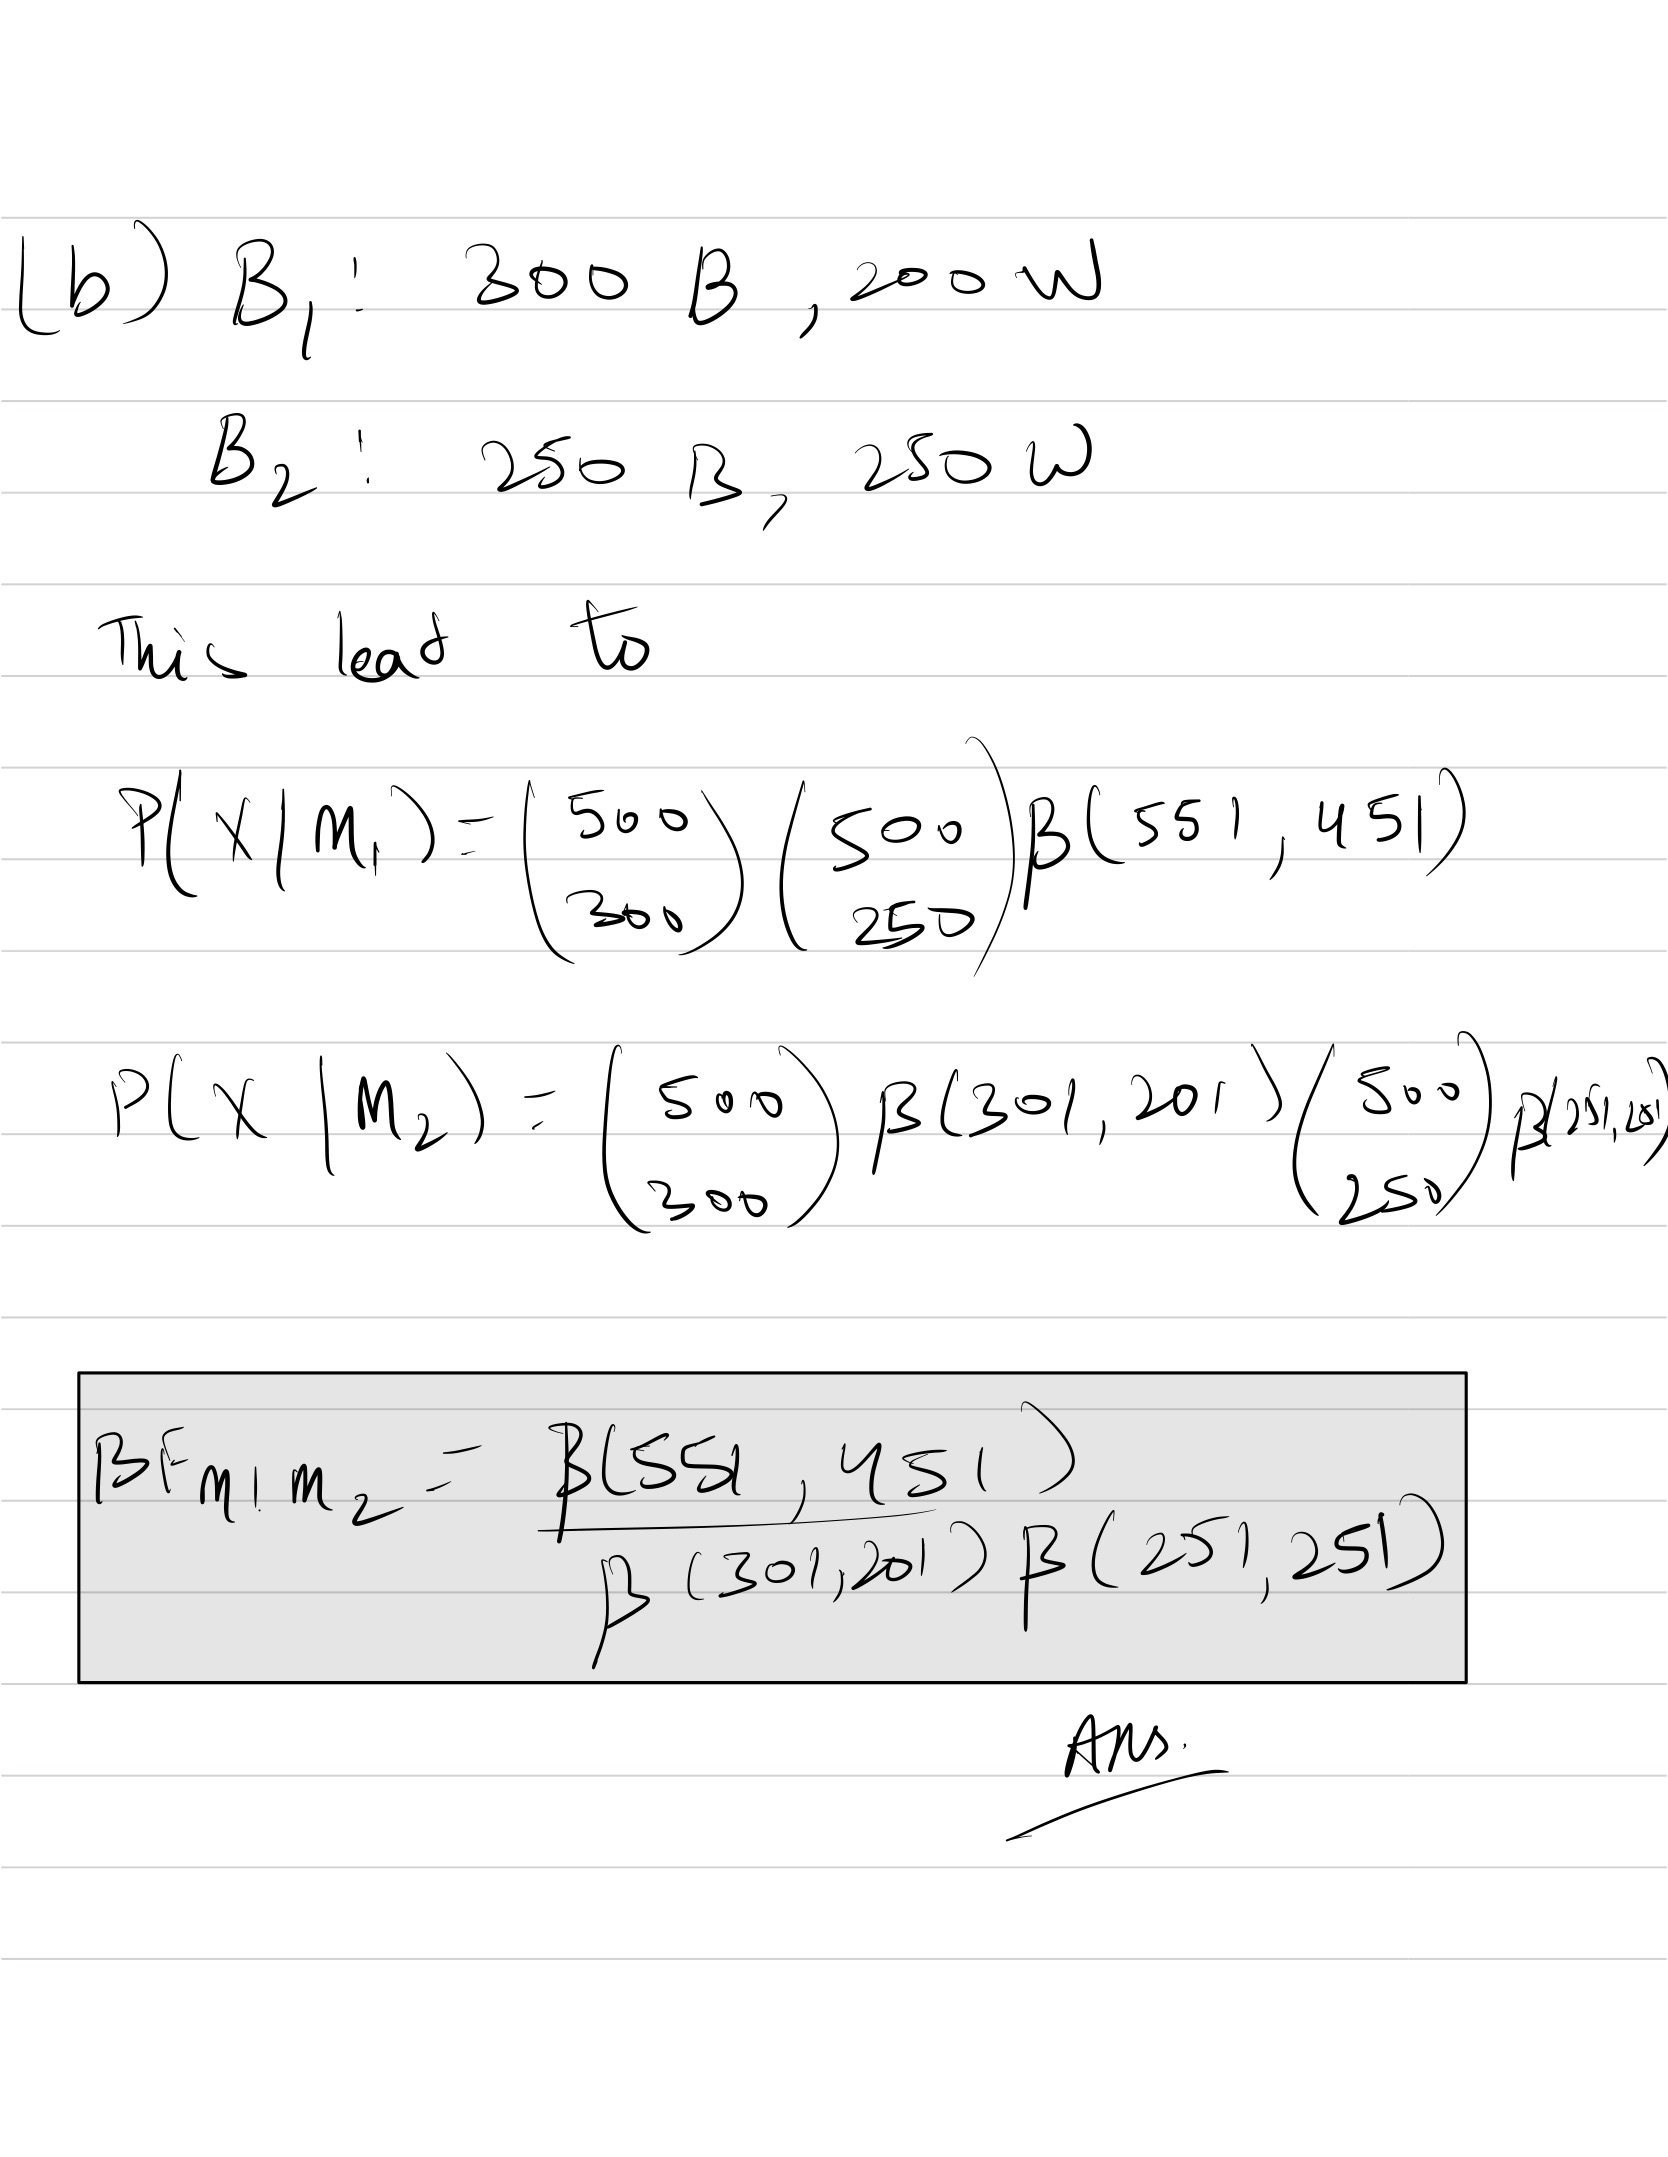 (b) B₁ : 300 B , 200 W
B₂ : 250 B , 250 W
This lead to
P(X|M₁) = (500 300) (500 250) β(551, 451)
P(X|M₂) = (500 300) β(301, 201) (500 250) β(251, 251)
BF M₁M₂ = β(551, 451)
β(301,201) β(251, 251)
Ans.